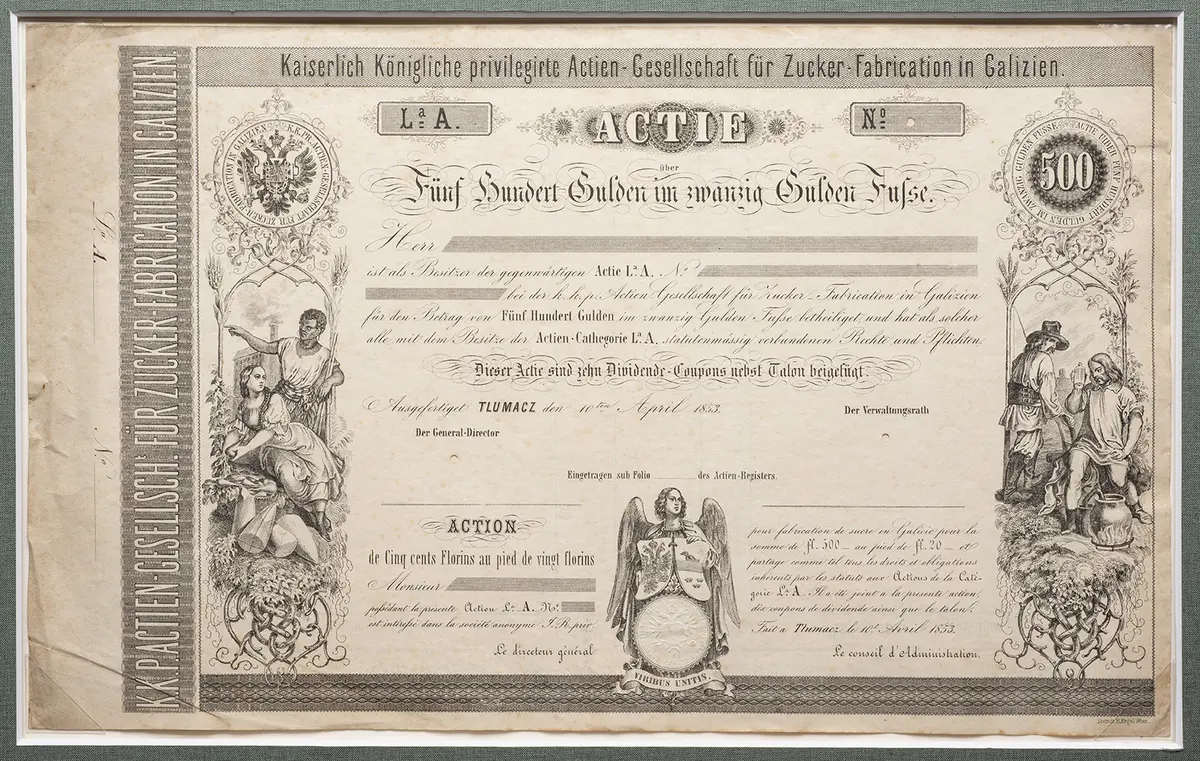 Kaiserlich Königliche privilegirte Actien-Gesellschaft für Zucker-Fabrication in Galizien.
K.K.P. ACTIEN-GESELLSCHT. FÜR ZUCKER-FABRICATION IN GALIZIEN.
La A.
ACTIE
No
über
Fünf Hundert Gulden im zwanzig Gulden Fusse.
500
Herr
ist als Besitzer der gegenwärtigen Actie La A. No
bei der k. k. p. Actien Gesellschaft für Zucker-Fabrication in Galizien
für den Betrag von Fünf Hundert Gulden im zwanzig Gulden Fusse betheiligt und hat als solcher
alle mit dem Besitze der Actien-Cathegorie La A. statutenmässig verbundenen Rechte und Pflichten.
Dieser Actie sind zehn Dividende-Coupons nebst Talon beigefügt.
Ausgefertiget TLUMACZ den 10ten April 1853.
Der Verwaltungsrath
Der General-Director
Eingetragen sub Folio des Actien-Registers.
ACTION
de Cinq cents Florins au pied de vingt florins
Monsieur
possédant la présente Action La A. No
est intéressé dans la société anonyme I. R. priv.
Le directeur général
pour fabrication du sucre en Galicie pour la
somme de fl. 500 au pied de fl. 20 et
partage comme tel tous les droits et obligations
inhérents par les statuts aux Actions de la Caté-
gorie La A. Il a été joint à la présente action
dix coupons de dividende ainsi que le talon.
Fait à Tlumacz Avril 1853.
Le conseil d'Administration.
VIRIBUS UNITIS.
La A.
No